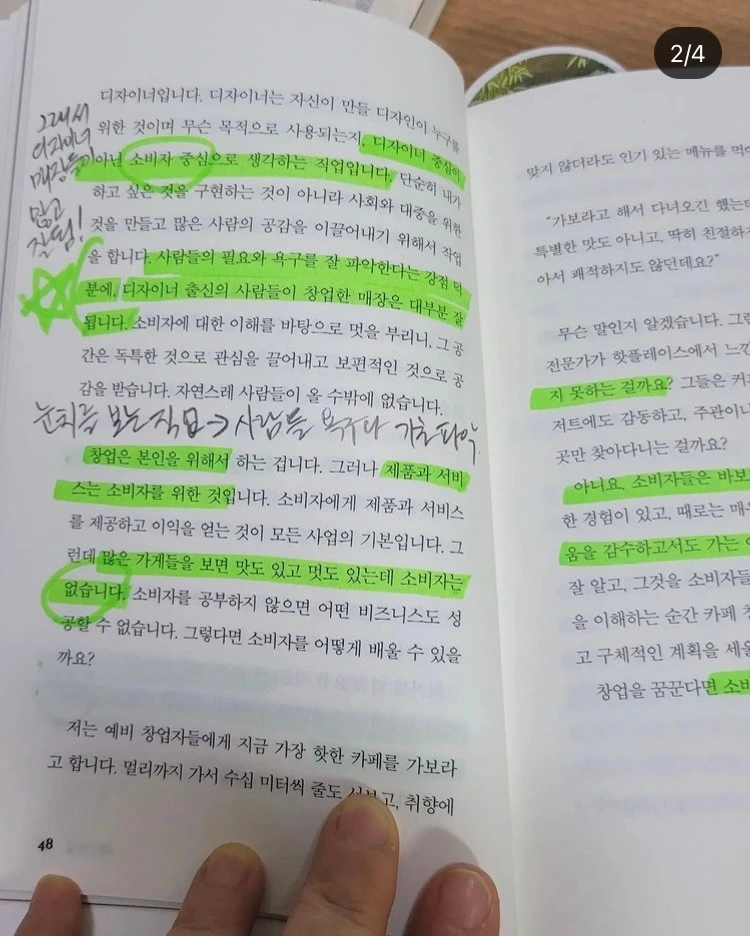 2/4
디자이너입니다. 디자이너는 자신이 만들 디자인이 누구를
위한 것이며 무슨 목적으로 사용되는지, 디자이너 중심이
아닌 소비자 중심으로 생각하는 직업입니다. 단순히 내가
하고 싶은 것을 구현하는 것이 아니라 사회와 대중을 위한
것을 만들고 많은 사람의 공감을 이끌어내기 위해서 작업
을 합니다. 사람들의 필요와 욕구를 잘 파악한다는 강점 덕
분에, 디자이너 출신의 사람들이 창업한 매장은 대부분 잘
됩니다. 소비자에 대한 이해를 바탕으로 멋을 부리니, 그 공
간은 독특한 것으로 관심을 끌어내고 보편적인 것으로 공
감을 받습니다. 자연스레 사람들이 올 수밖에 없습니다.
그래서
디자이너
매장들이
많고
잘됨!
눈치를 보는 직업 → 사람들 욕구나 기초 파악.
창업은 본인을 위해서 하는 겁니다. 그러나 제품과 서비
스는 소비자를 위한 것입니다. 소비자에게 제품과 서비스
를 제공하고 이익을 얻는 것이 모든 사업의 기본입니다. 그
런데 많은 가게들을 보면 맛도 있고 멋도 있는데 소비자는
없습니다. 소비자를 공부하지 않으면 어떤 비즈니스도 성
공할 수 없습니다. 그렇다면 소비자를 어떻게 배울 수 있을
까요?
저는 예비 창업자들에게 지금 가장 핫한 카페를 가보라
고 합니다. 멀리까지 가서 수십 미터씩 줄도 서보고, 취향에
48
맞지 않더라도 인기 있는 메뉴를 먹어
"가보라고 해서 다녀오긴 했는데
특별한 맛도 아니고, 딱히 친절하지
아서 쾌적하지도 않던데요?"
무슨 말인지 알겠습니다. 그런
전문가가 핫플레이스에서 느끼
지 못하는 걸까요? 그들은 커피
저트에도 감동하고, 주관이나
곳만 찾아다니는 걸까요?
아니요. 소비자들은 바보
한 경험이 있고, 때로는 매우
움을 감수하고서도 가는
잘 알고, 그것을 소비자들
을 이해하는 순간 카페 창
고 구체적인 계획을 세울
창업을 꿈꾼다면 소비